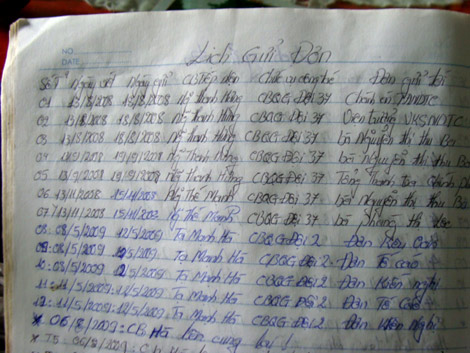 NO
DATE
Lịch Gửi Đơn
Số TT Ngày viết Ngày gửi CB tiếp nhận Chức vụ đơn vị Đơn gửi tới
01 13/8/2008 18/8/2008 Ng Thanh Hùng CBQG Đội 37 Chánh án TANDTC
02 13/8/2008 18/8/2008 Ng Thanh Hùng CBQG Đội 37 Viện trưởng VKSNDTC
03 13/8/2008 18/8/2008 Ng Thanh Hùng CBQG Đội 37 bà Nguyễn thị thu Ba
04 /9/2008 19/9/2008 Ng Thanh Hùng CBQG Đội 37 bà Nguyễn thị thu Ba
05 /9/2008 19/9/2008 Ng Thanh Hùng CBQG Đội 37 Tổng Thanh tra Chính phủ
06 13/11/2008 15/11/2008 Ng Thế Mạnh CBQG Đội 37 bà Nguyễn thị thu Ba
07 13/11/2008 15/11/2008 Ng Thế Mạnh CBQG Đội 37 bà
08: 08/5/2009 12/5/2009 Tạ Mạnh Hà CBQG Đội 2 Đơn
09: 08/5/2009 12/5/2009 Tạ Mạnh Hà CBQG Đội 2 Đơn Tố cáo
10: 08/5/2009 12/5/2009 Tạ Mạnh Hà CBQG Đội 2 Đơn Kiến nghị
11: 11/5/2009: 12/5/2009 Tạ Mạnh Hà CBQG Đội 2 Đơn Tố Cáo
12: 11/5/2009: 12/5/2009 Tạ Mạnh Hà CBQG Đội 2 Đơn Kiến Nghị
* 06/8/2009: CB Hà